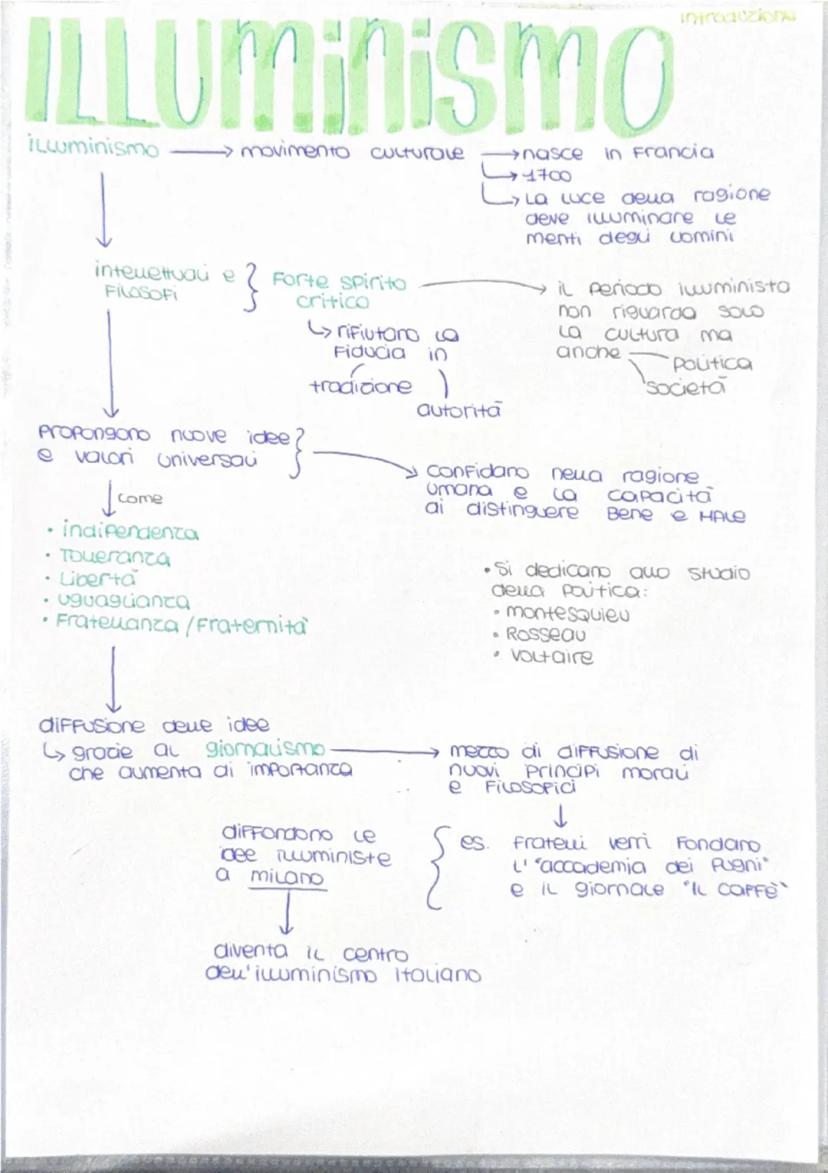 introduzione
ILLUMINISMO
illuminismo → movimento culturale → nasce in Francia
→ 1700
→ La luce della ragione
deve illuminare le
menti degli uomini
intellettuali e
filosofi
} Forte spirito
critico
→ il periodo illuminista
non riguarda solo
la cultura ma
anche
politica
società
↳ rifiutano la
fiducia in
tradizione
autorità
Propongono nuove idee
e valori universali
}
→ confidano nella ragione
umana e la capacità
di distinguere Bene e MALE
↓ come
• indipendenza
• Tolleranza
• Libertà
• uguaglianza
• Fratellanza / Fraternità
• Si dedicano allo studio
della politica:
• montesquieu
• Rosseau
• Voltaire
diffusione delle idee
↳ grazie al giornalismo
che aumenta di importanza
→ mezzo di diffusione di
nuovi principi morali
e filosofici
↓
{ es. fratelli verri fondano
l'"accademia dei Pugni"
e il giornale "IL CAFFÈ"
diffondono le
idee illuministe
a milano
↓
diventa il centro
dell'illuminismo italiano